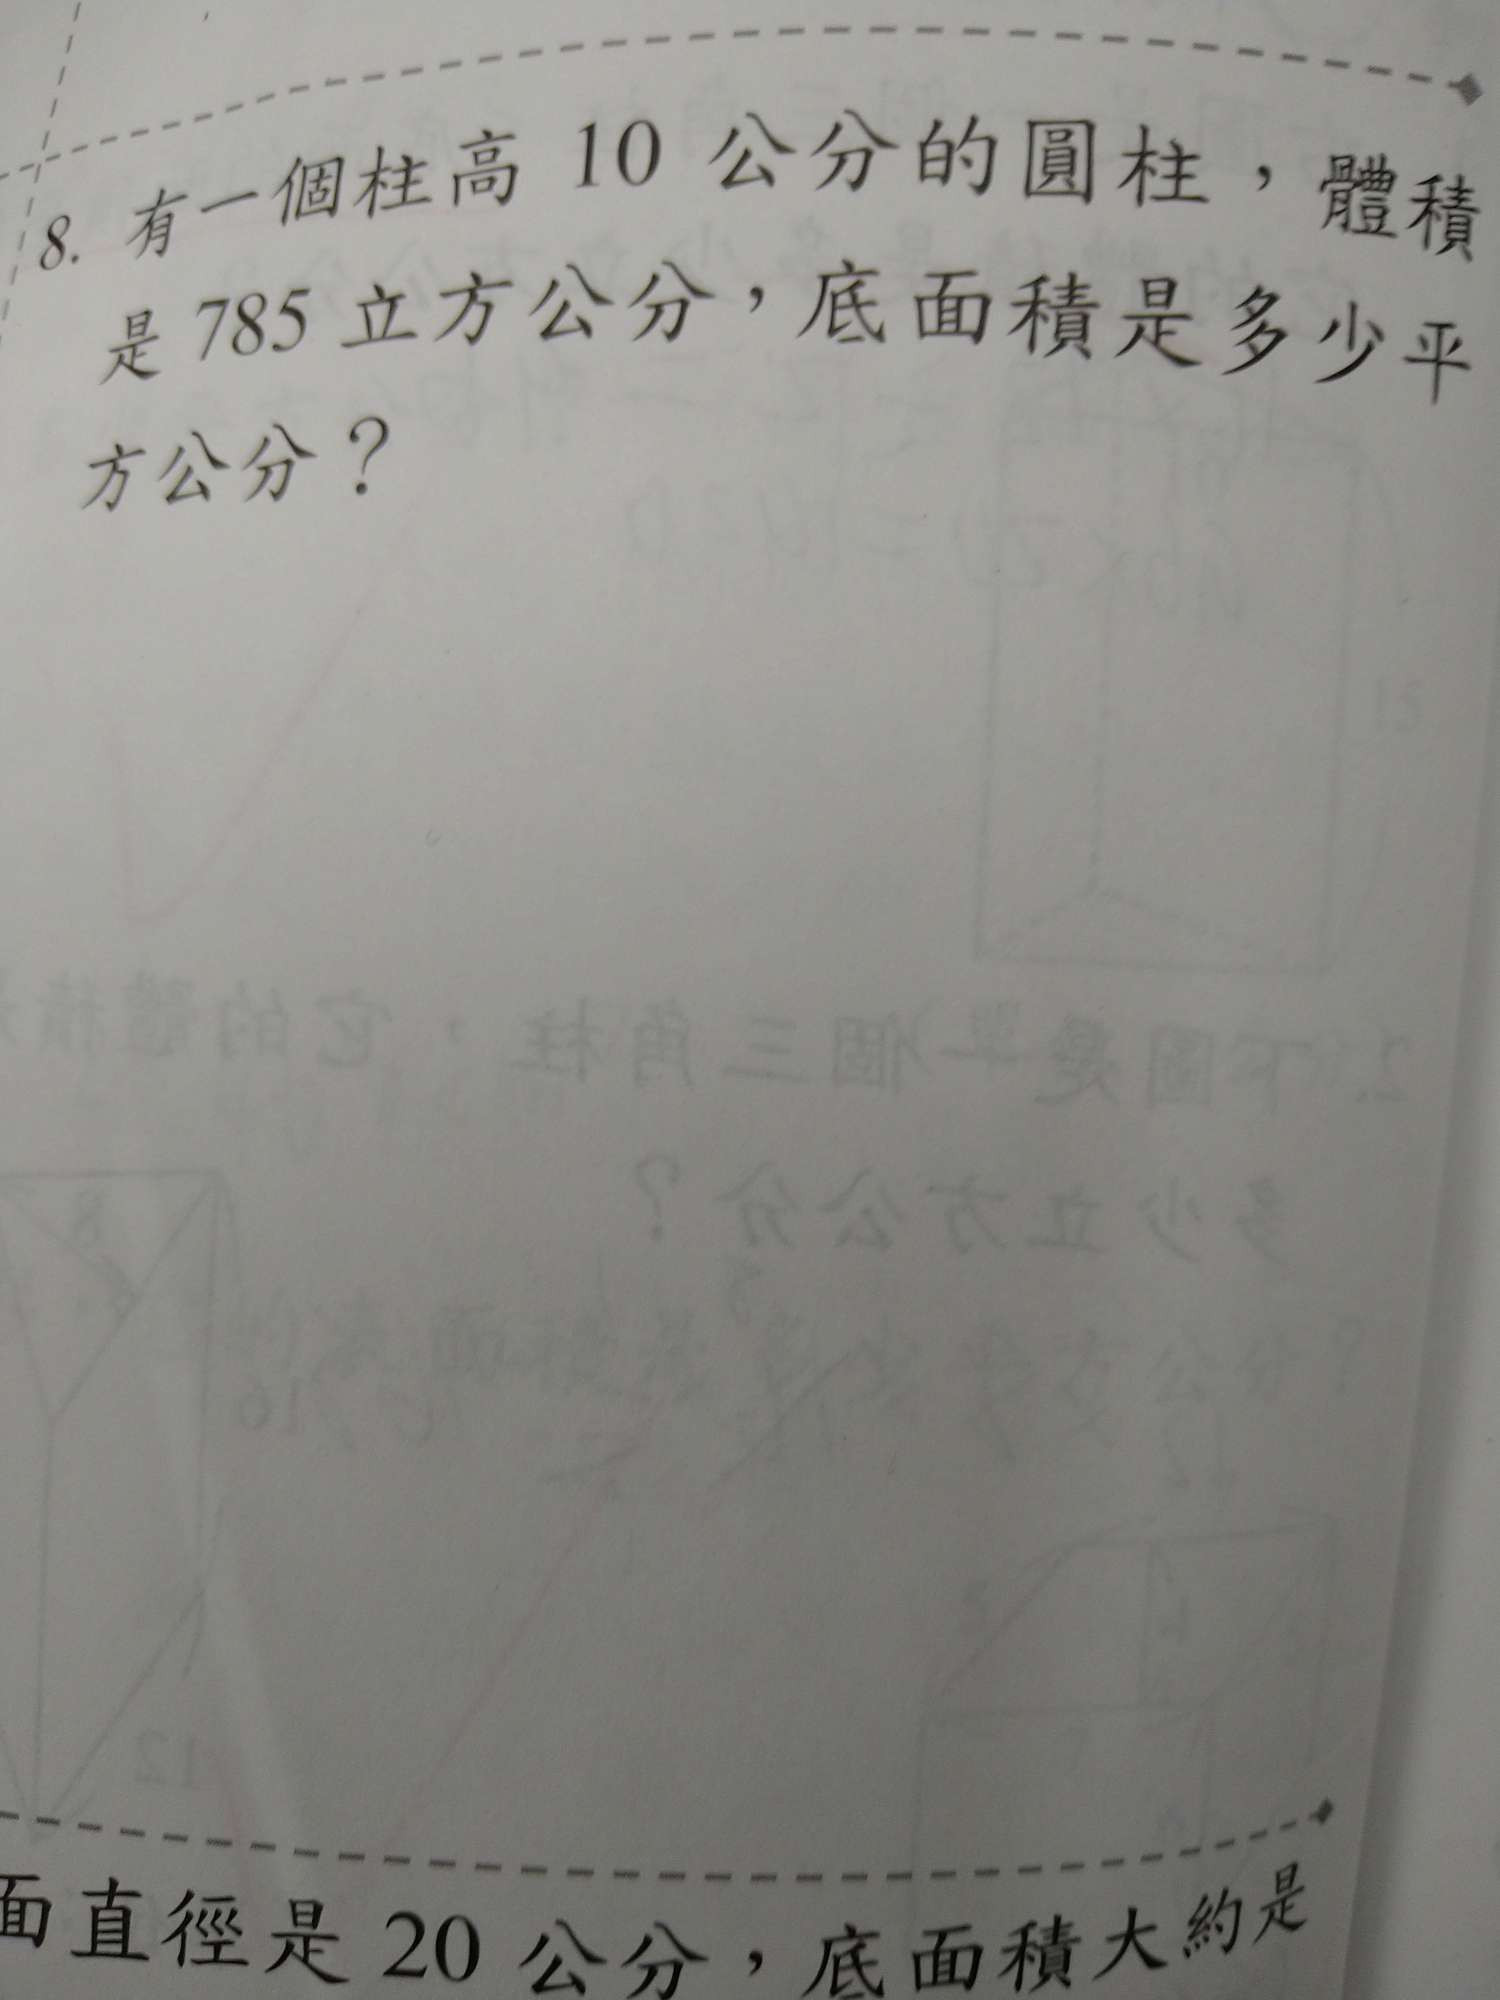 8. 有一個柱高 10 公分的圓柱，體積
是 785 立方公分，底面積是多少平
方公分？
面直徑是 20 公分，底面積大約是